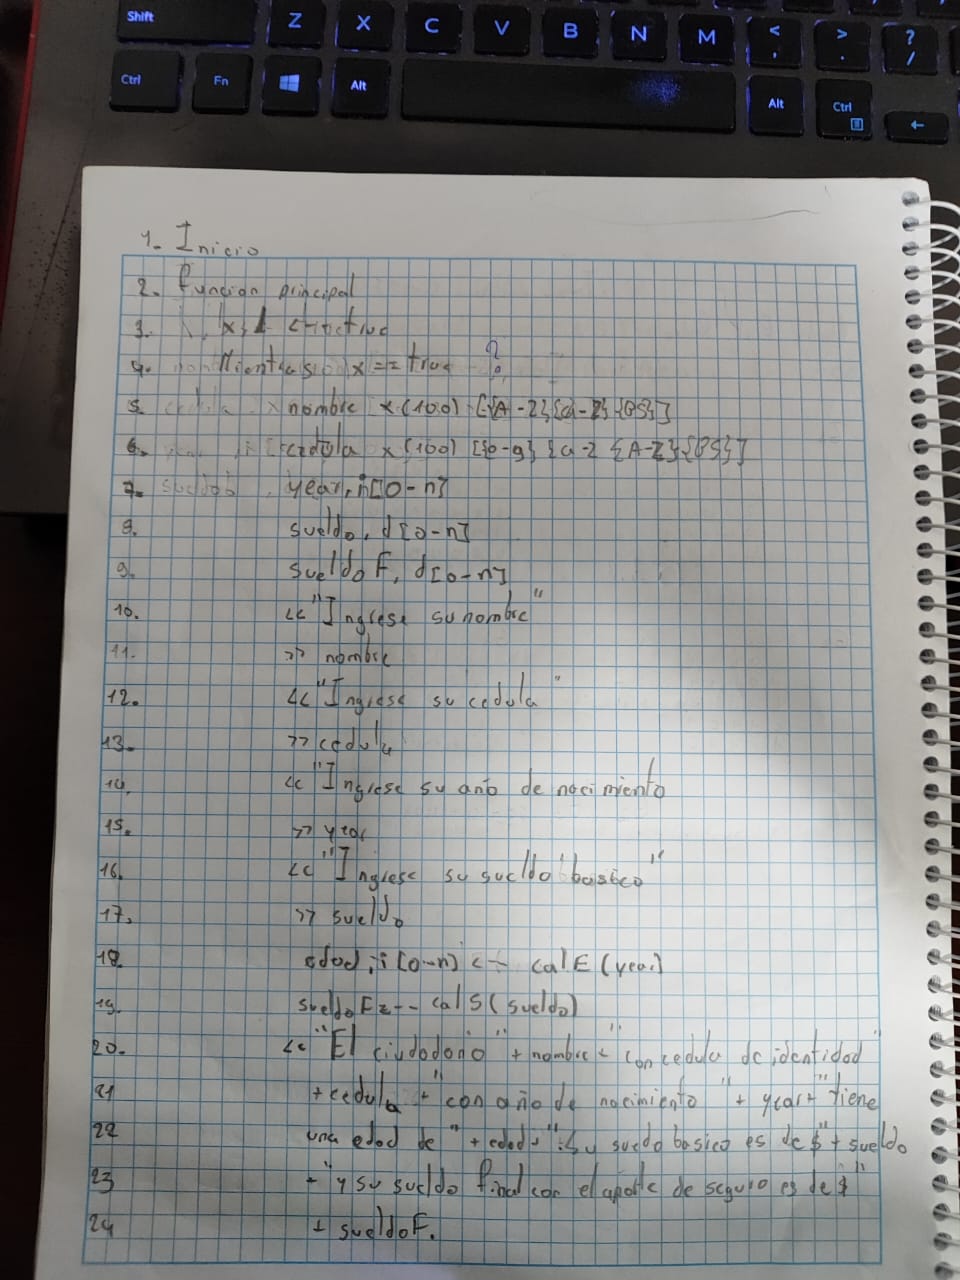 Shift Z X C V B N M < , > . ? /
Ctrl Fn Alt Alt Ctrl ←
1. Inicio
2. funcion principal
3. x, L <- true
4. Mientras x == true {
5. nombre x(100) [{A-Z}{a-z}{ES}]
6. cedula x(100) [{0-9}{a-z{A-Z}{ES}]
7. year, i[0-n]
8. sueldo, d[0-n]
9. sueldoF, d[0-n]
10. << "Ingrese su nombre"
11. >> nombre
12. << "Ingrese su cedula"
13. >> cedula
14. << "Ingrese su año de nacimiento
15. >> year
16. << "Ingrese su sueldo basico"
17. >> sueldo
18. edad, i[0-n] <- calE(year)
19. sueldoF <-- calS(sueldo)
20. << "El ciudadano" + nombre + "con cedula de identidad"
21 + cedula + "con año de nacimiento" + year + "tiene
22 una edad de" + edad + ".Su suedo basico es de $" + sueldo
23 + "y su sueldo final con el aporte de seguro es de $"
24 + sueldoF.